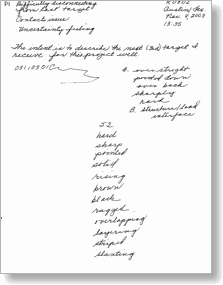 PI Difficulty disconnecting
from last target
Contact issue
Uncertainty fishing
Austin, Tex.
Nov. 8, 2008
13:35
The intent is to describe the next target I
receive for this project well
A. over straight
pointed down
over back
sharply
hard
B. structure/land
interface
S2
hard
sharp
pointed
solid
rising
brown
black
rugged
overlapping
layering
striped
slanting